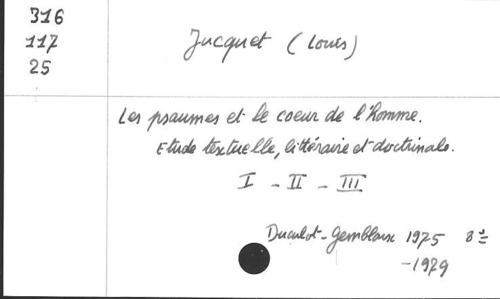 316
117
25
Jacquet (Louis)
Les psaumes et le coeur de l'homme.
Etude textuelle, littéraire et doctrinale.
I - II - III
Duculot - Gembloux 1975 8°
-1979